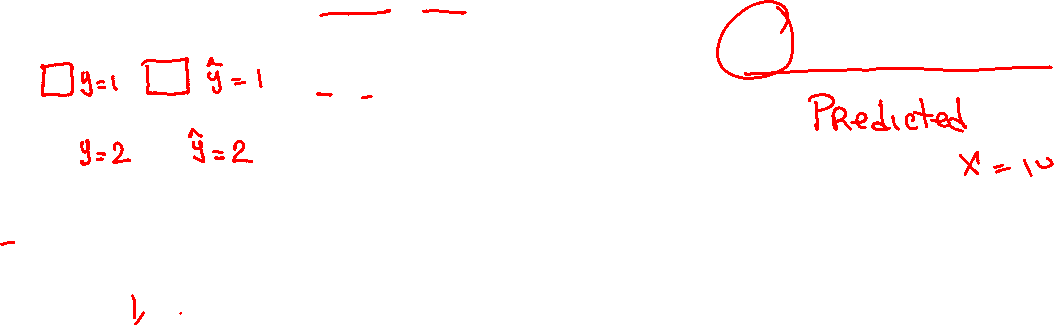 y=1 ŷ=1
y=2 ŷ=2
Predicted
x=10
1,